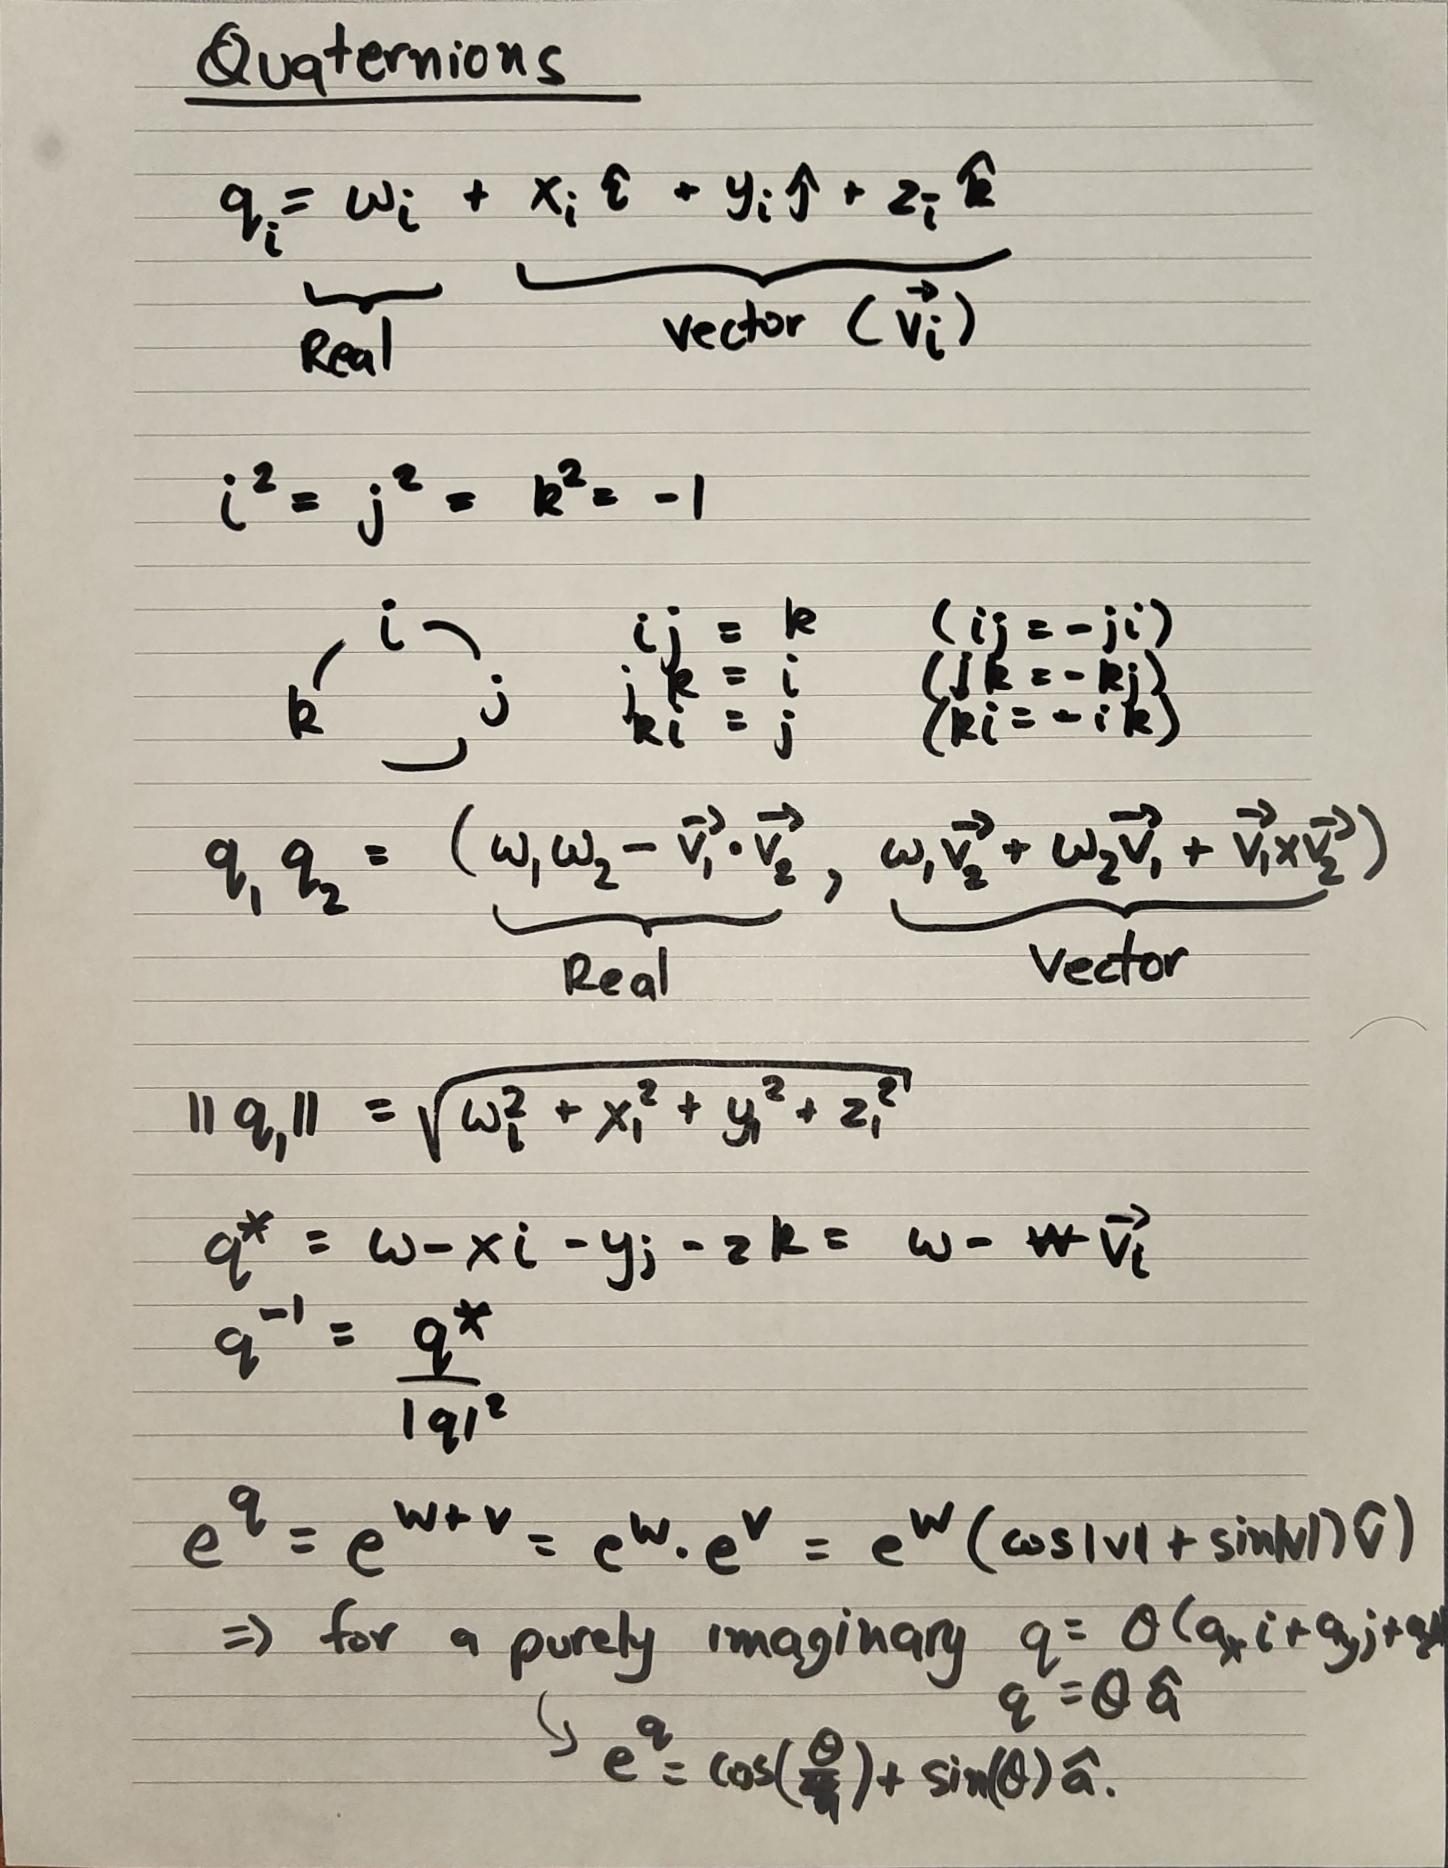 Quaternions
qᵢ = ωᵢ + xᵢ î + yᵢ ĵ + zᵢ k̂
Real vector (v⃗ᵢ)
i² = j² = k² = -1
i
k j
ij = k (ij = -ji)
jk = i (jk = -kj)
ki = j (ki = -ik)
q₁ q₂ = (ω₁ω₂ - v⃗₁·v⃗₂, ω₁v⃗₂ + ω₂v⃗₁ + v⃗₁×v⃗₂)
Real Vector
||q₁|| = √(ωᵢ² + x₁² + y₁² + z₁²)
q* = ω - xi - yj - zk = ω - v⃗ᵢ
q⁻¹ = q*/|q|²
e^q = e^(w+v) = e^w · e^v = e^w (cos|v| + sin|v|) v̂)
⇒ for a purely imaginary q = θ(aₓi + a_yj +
q = θ â
↳ e^q = cos(θ) + sin(θ) â.